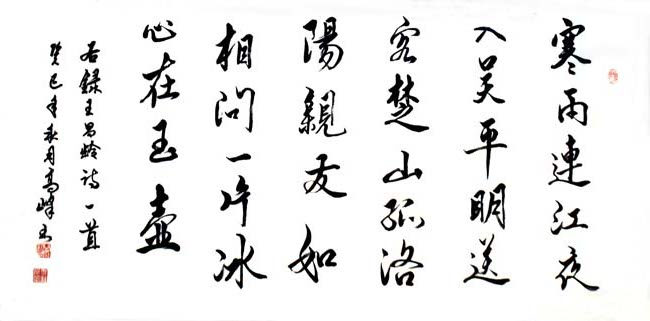 寒雨連江夜
入吴平明送
客楚山孤洛
陽親友如
相問一片冰
心在玉壷
右録王昌龄诗一首
癸巳年秋月高峰书